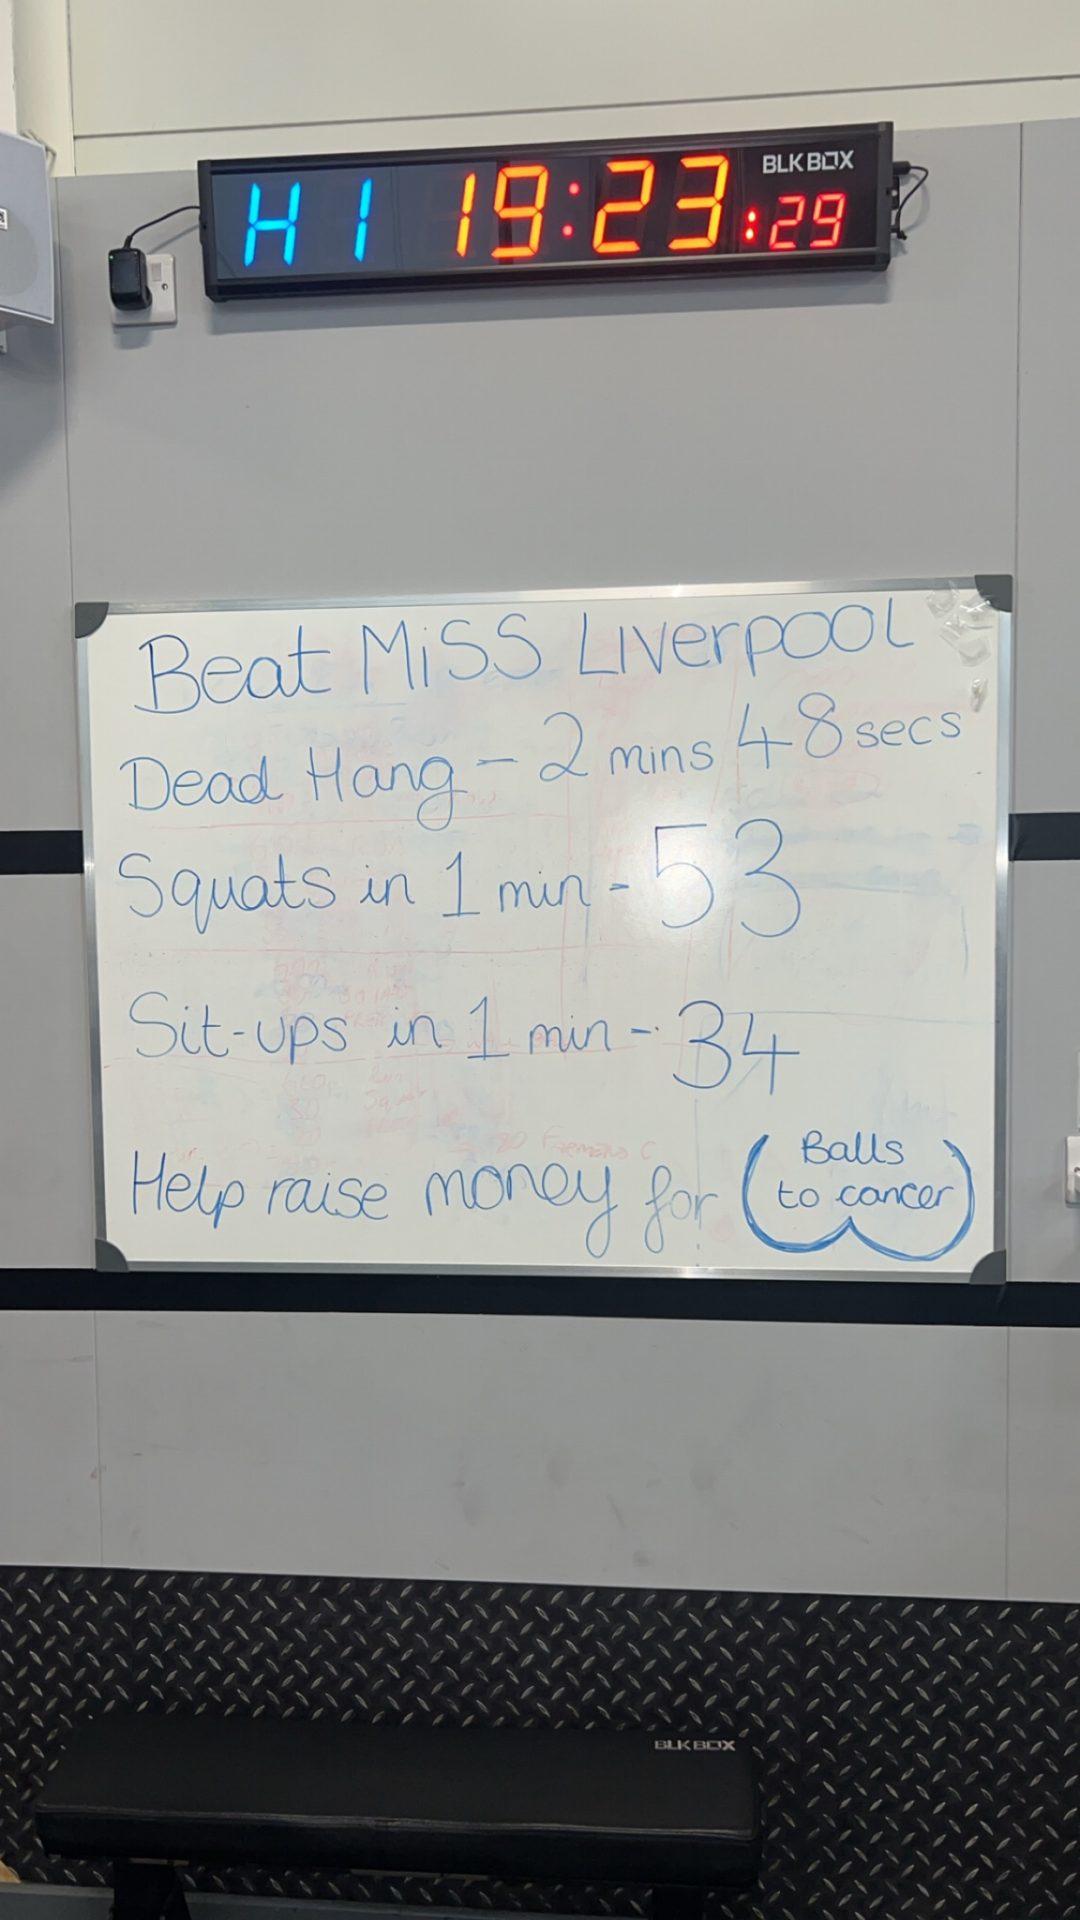 H1 19:23:29
BLKBOX
Beat Miss Liverpool
Dead Hang - 2 mins 48 secs
Squats in 1 min - 53
Sit-ups in 1 min - 34
Help raise money for
Balls
to cancer
BLKBOX